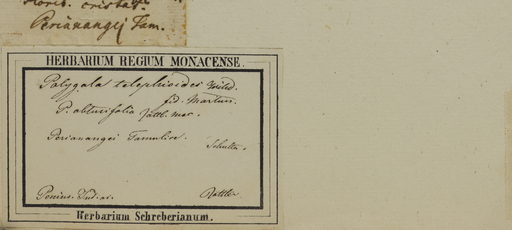 Floret. cristat.
Perianangej Tam.
HERBARIUM REGIUM MONACENSE.
Polygala telephioides Willd.
fid. Martius.
P. obtusifolia Rottl. msc.
Perianangei Tamulice.
Schultes.
Penins. Ind. or. Rottler
Herbarium Schreberianum.